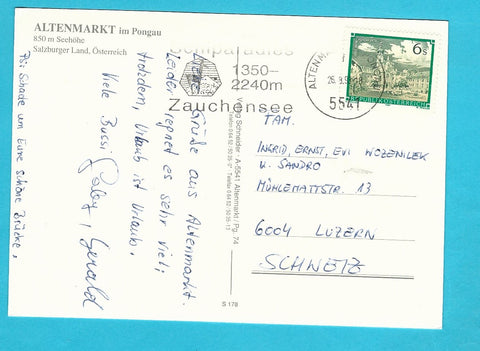 ALTENMARKT im Pongau
850 m Seehöhe
Salzburger Land, Österreich
1350–
2240m
Zauchensee
ALTENM
5541
6 S
REPUBLIK ÖSTERREICH
Liebe Grüße aus Altenmarkt.
Leider regnet es sehr viel,
trotzdem, Urlaub ist Urlaub.
Viele Bussi Gaby, Gerald
PS: Schade um Eure schöne Brücke,
Verlag Schneider · A-5541 Altenmarkt / Pg. 74
S 178
FAM.
INGRID, ERNST, EVI WOZENILEK
U. SANDRO
MÜHLEMATTSTR. 13
6004 LUZERN
SCHWEIZ